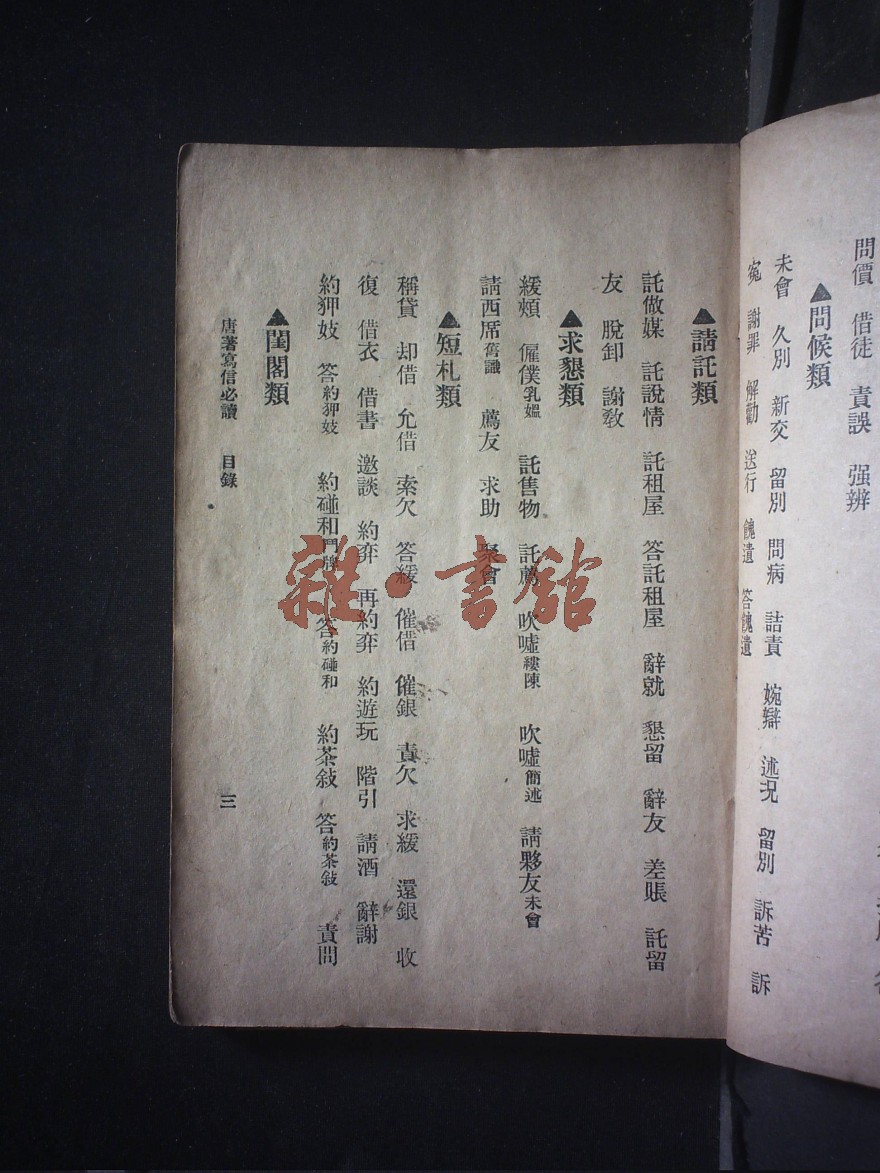 問價 借徒 責誤 强辨
▲問候類
未會 久別 新交 留別 問病 詰責 婉辯 述况 留別 訴苦 訴
寃 謝罪 解勸 送行 餽遺 答餽遺
▲請託類
託做媒 託說情 託租屋 答託租屋 辭就 懇留 辭友 差賬 託留
友 脫卸 謝教
▲求懇類
緩頰 僱僕乳媼 託售物 託薦 吹噓縷陳 吹噓簡述 請夥友未會
請西席舊識 薦友 求助 聚會
▲短札類
稱貸 却借 允借 索欠 答緩 催借 催銀 責欠 求緩 還銀 收
復 借衣 借書 邀談 約弈 再約弈 約遊玩 階引 請酒 辭謝
約狎妓 答約狎妓 約碰和鬥牌 答約碰和 約茶敍 答約茶敍 責問
▲閨閣類
唐著寫信必讀 目錄 三
雜·書館